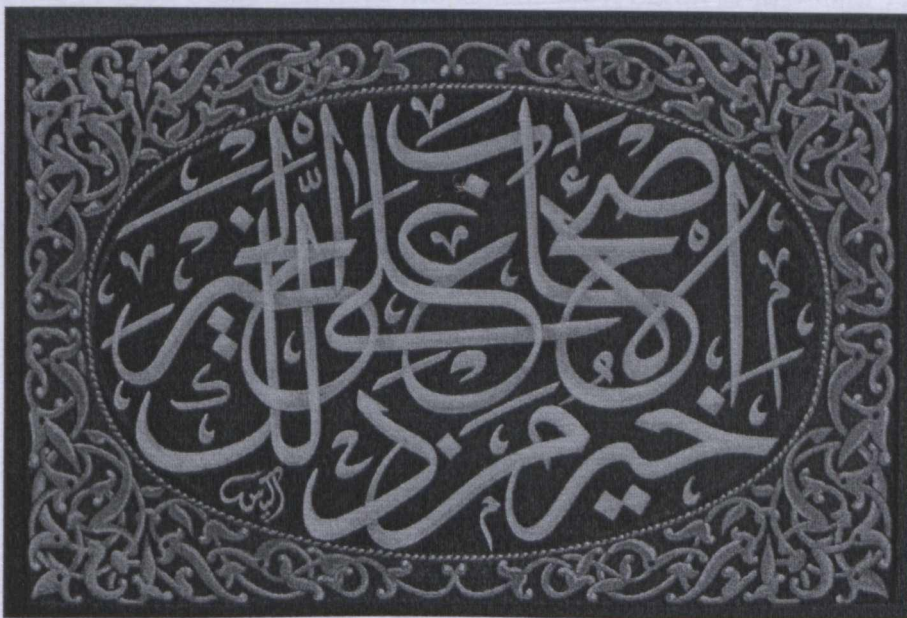 خير الأصحاب من دلّك على الخير